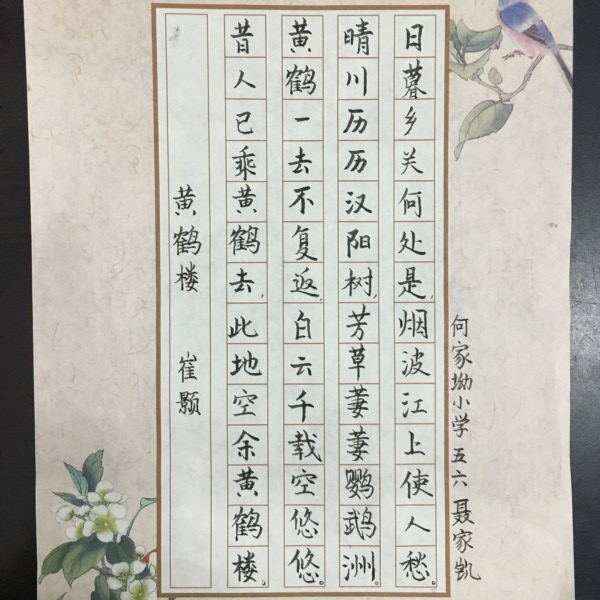 黄鹤楼 崔颢
昔人已乘黄鹤去,此地空余黄鹤楼。
黄鹤一去不复返,白云千载空悠悠。
晴川历历汉阳树,芳草萋萋鹦鹉洲。
日暮乡关何处是,烟波江上使人愁。
何家坳小学 五六 聂家凯